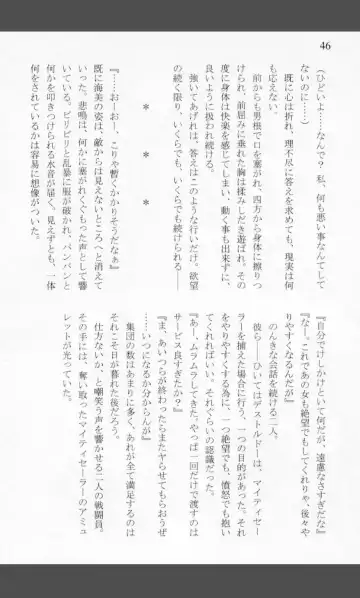 46
(ひどいよ……なんで? 私、何も悪い事なんてして
ないのに……)
既に心は折れ、理不尽に答えを求めても、現実は何
も応えない。
前からも男根で口を塞がれ、四方から身体に擦りつ
けられ、前屈みに垂れた胸は揉みしだき遊ばれ。その
度に身体は快楽を感じてしまい、動く事も出来ずに、
良いように扱われ続ける。
強いてあげれば、答えはこのような行いだけ。欲望
の続く限り、いくらでも、いくらでも続けられる――
* * *
『……おーおー、こりゃ暫くかかりそうだなぁ』
既に海美の姿は、敵からは見えないところへと消えて
いった。悲鳴は、何かに塞がれくぐもった声として響
いている。ビリビリと乱暴に服が破かれ、パンパンと
何かを叩きつけられる水音が届く。見えずとも、一体
何をされているかは容易に想像がついた。
『自分でけしかけといて何だが、遠慮なさすぎだな』
『なー。これであの女も絶望でもしてくれりゃ、後々や
りやすくなるんだが』
のんきな会話を続ける二人。
彼ら――ひいてはデストルドーは、マイティセー
ラーを捕えた場合に行う、一つの目的があった。それ
をやりやすくする為に、一つ絶望でも、憤怒でも抱い
てくれればいい。それぐらいの認識だった。
『あー、ムラムラしてきた。やっぱ一回だけで渡すのは
サービス良すぎたか?』
『ま、あいつらが終わったらまたヤらせてもらおうぜ
……いつになるか分からんが』
集団の数はあまりに多く、あれが全て満足するのは
それこそ日が暮れた後だろう。
仕方ないか、と嘲笑う声を響かせる二人の戦闘員。
その手には、奪い取ったマイティセーラーのアミュ
レットが光っていた。